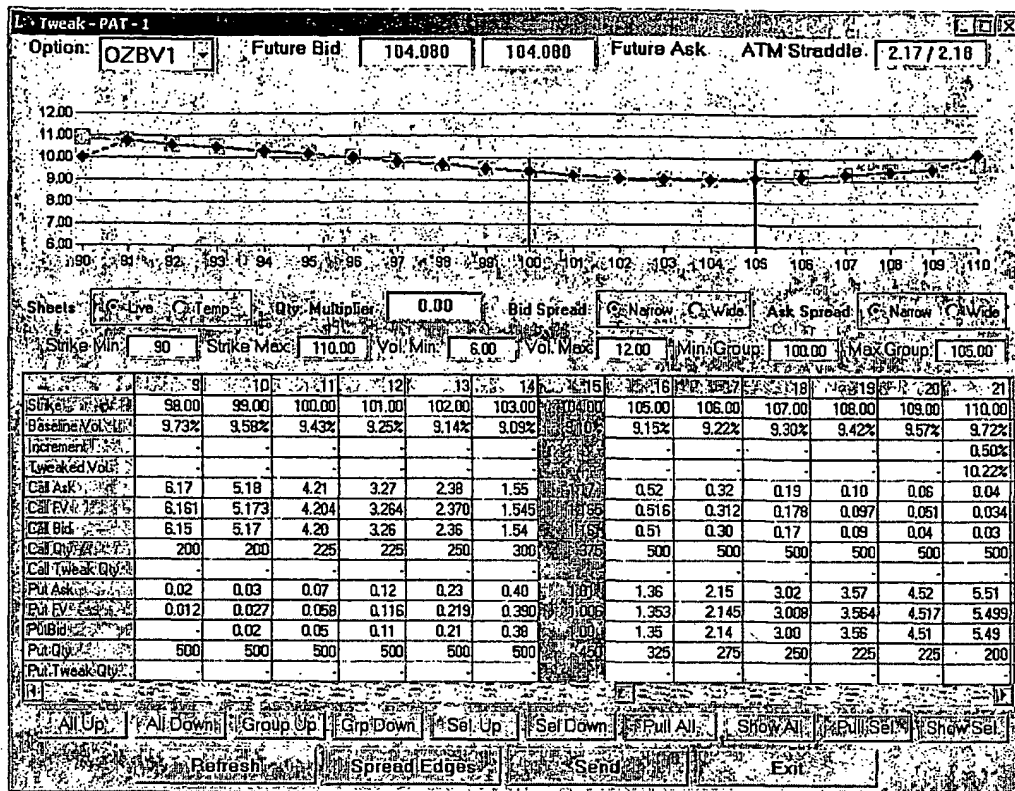 Tweak - PAT - 1
Option: OZBV1 Future Bid 104.080 104.080 Future Ask ATM Straddle 2.17 / 2.18
12.00
11.00
10.00
9.00
8.00
7.00
6.00
90 91 92 93 94 95 96 97 98 99 100 101 102 103 104 105 106 107 108 109 110
Sheets Live Temp Qty Multiplier 0.00 Bid Spread Narrow Wide Ask Spread Narrow Wide
Strike Min 90 Strike Max 110.00 Vol. Min 6.00 Vol. Max 12.00 Min Group 100.00 Max Group 105.00
9 10 11 12 13 14 15 16 17 18 19 20 21
Strike 98.00 99.00 100.00 101.00 102.00 103.00 104.00 105.00 106.00 107.00 108.00 109.00 110.00
Baseline Vol. 9.73% 9.58% 9.43% 9.25% 9.14% 9.09% 9.15% 9.22% 9.30% 9.42% 9.57% 9.72%
Increment - - - - - - - - - - - 0.50%
Tweaked Vol. - - - - - - - - - - - 10.22%
Call Ask 6.17 5.18 4.21 3.27 2.38 1.55 0.52 0.32 0.19 0.10 0.06 0.04
Call F.V. 6.161 5.173 4.204 3.264 2.370 1.545 0.516 0.312 0.178 0.097 0.051 0.034
Call Bid 6.15 5.17 4.20 3.26 2.36 1.54 0.51 0.30 0.17 0.09 0.04 0.03
Call Qty 200 200 225 225 250 300 375 500 500 500 500 500 500
Call Tweak Qty. - - - - - - - - - - - -
Put Ask 0.02 0.03 0.07 0.12 0.23 0.40 1.36 2.15 3.02 3.57 4.52 5.51
Put F.V. 0.012 0.027 0.058 0.116 0.219 0.390 1.006 1.353 2.145 3.008 3.564 4.517 5.499
Put Bid - 0.02 0.05 0.11 0.21 0.38 1.35 2.14 3.00 3.56 4.51 5.49
Put Qty 500 500 500 500 500 500 450 325 275 250 225 225 200
Put Tweak Qty. - - - - - - - - - - - -
All Up All Down Group Up Grp Down Sel. Up Sel Down Pull All Show All Pull Sel. Show Sel.
Refresh Spread Edges Send Exit